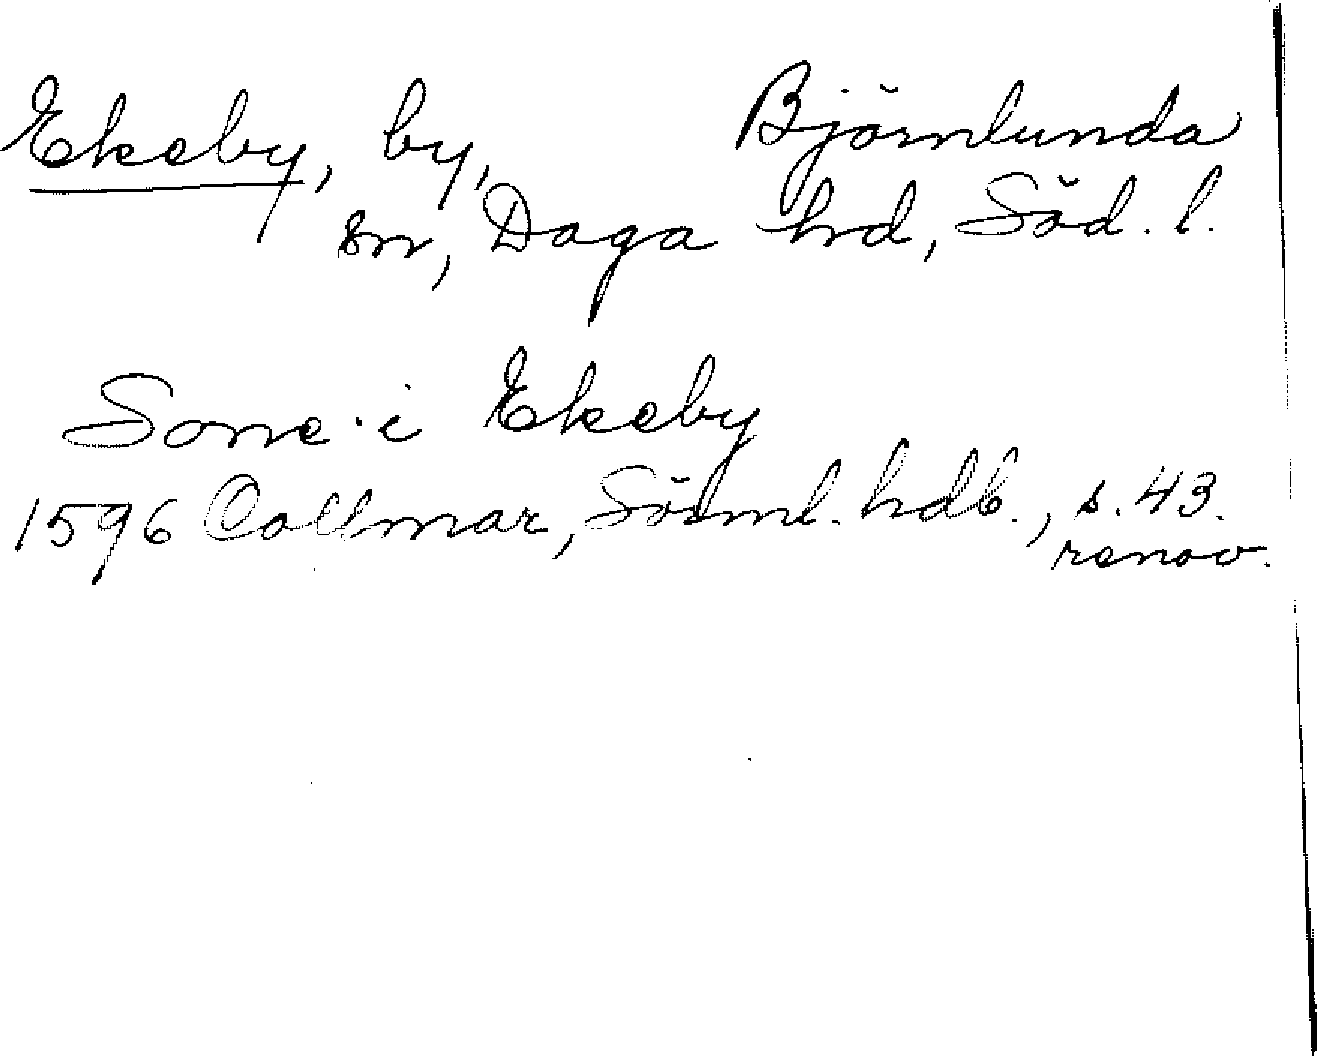 Ekeby, by, Björnlunda
sn, Daga hd, Söd. l.
Sone i Ekeby
1596 Collmar, Sörml. hdb., s. 43.
renov.